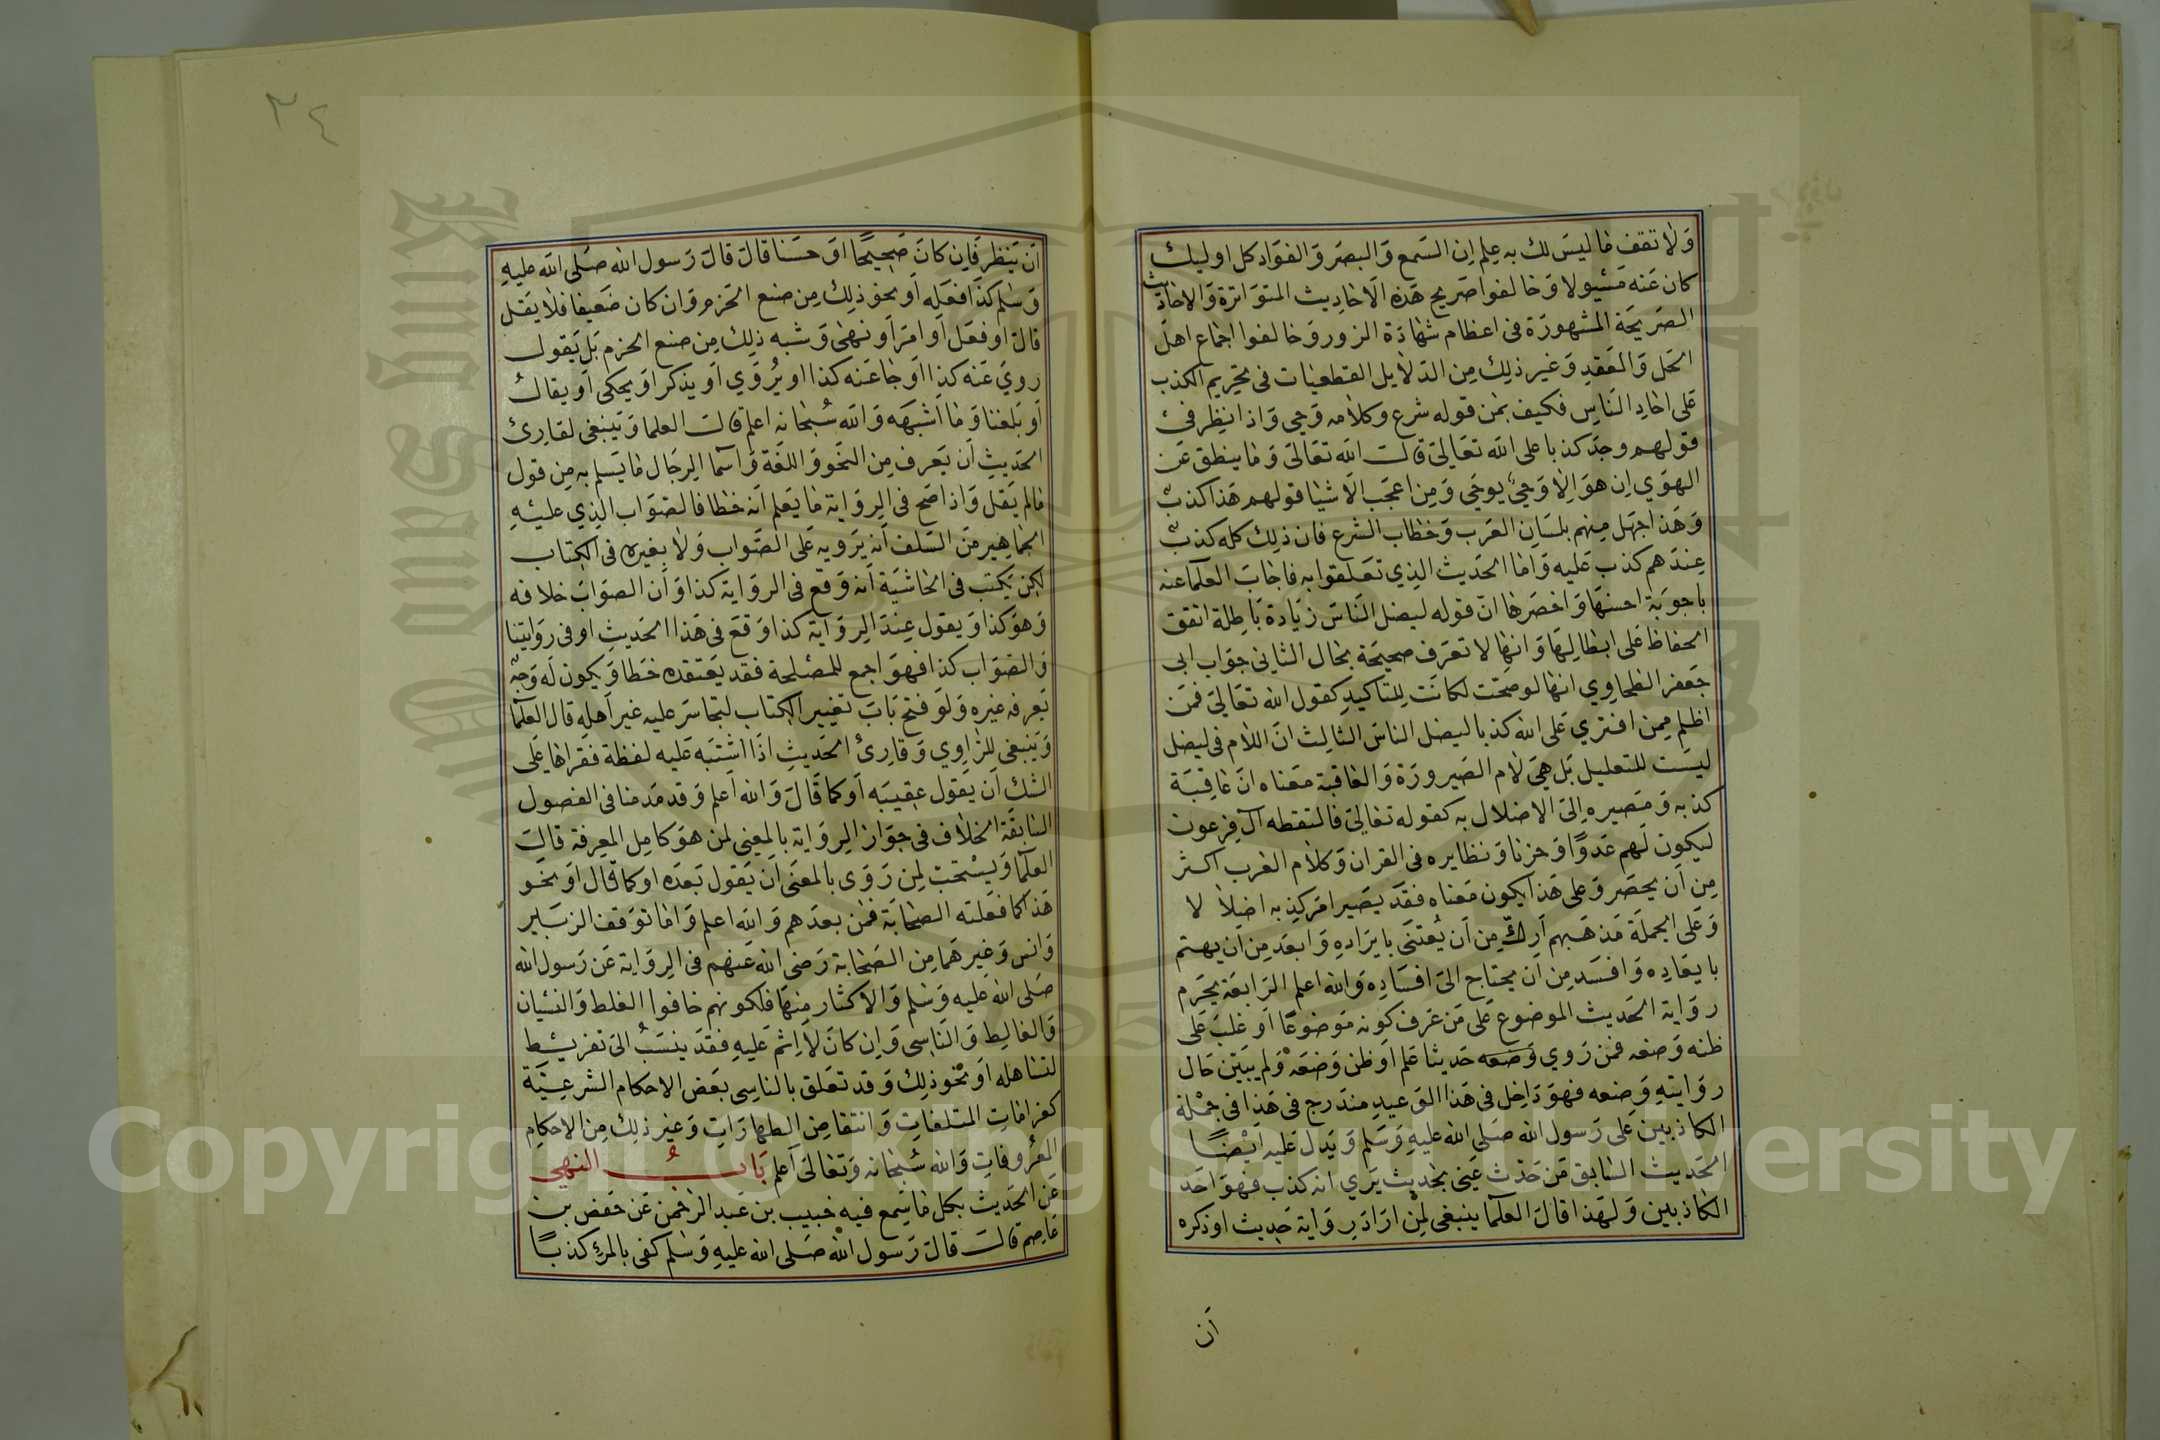 وَلا تقف ما ليسَ لك به عِلم اِن السَمع وَالبصَر وَالفوَاد كل اوليك
كان عَنه مَسْيولا وَخالفوا صَريح هَذه الاحَادِيث المتوَاترة وَالاحَاديث
الصَريحَة المشهورَة في اعظام شهَادَة الزور وَخالفوا اجمَاع اهلَ
الحَل وَالعَقدِ وَغير ذلِك مِن الدَلايل القطعيَات في تحَريم الكذب
عَلى احَاد النَاس فكيف بمَن قوله شرع وكلامه وَحي وَاذا نظِر في
قولهم وجدَ كذبا على الله تعَالىَ قالت الله تعَالىَ وَمَا ينطق عَن
الهوَي اِن هوَ اِلا وَحيٌ يوحَي وَمِن اعجَب الاشيَا قولهم هَذا كذبٌ
وَهَذا جهَل مِنهم بلسَان العَرب وَخطاب الشرع فان ذلِك كله كذبٌ
عِندَهم كذب عَليه وَامَا الحَديث الذِي تعَلقوا به فاجَابَ العلمَا عنه
باجوبَة احسنهَا وَاخصَرهَا انّ قوله ليضل النَاسَ زيَادة بَاطِلة اتفق
الحفاظ عَلى ابطالِهَا وَانهَا لا تعرَف صحيحَة بحَال الثاني جوَاب ابى
جَعفر الطحَاوِي انهَا لو صَحّت لكانَت لِلتاكيدِ كقول الله تعَالىَ فمَن
اظلم مِمن افتري عَلى الله كذبا ليضل الناسَ الثالِث انَ اللام في ليضل
ليسَت للتعليل بَل هيَ لام الصَيرورَة وَالعَاقبة مَعناه انَ عَاقِبَة
كذبه وَمَصيره اِلىَ الاضلال به كقوله تعَالىَ فالتقطه آل فِرعون
ليكون لَهم عَدوًا وَحزنا وَنظايره في القران وَكلام العَرب اكثر
مِن اَن يحصَر وَعلى هَذا يكون مَعناه فقَد يصَير امَر كذبه اضلالا
وَعَلى الجملَة مَذهَبهم اَركّ مِن اَن يُعتنَى بايرَادهِ وَابعَد مِن اَن يهتم
بابعَاده وَافسَد مِن اَن يحتاج الىَ افسَاده وَالله اعلم الرَابعَة يحَرم
روَاية الحَديث الموضوع عَلى مَن عَرف كونه مَوضوعًا اَو غلبَ عَلى
ظنه وَضعه فمَن رَوي وَضعه حَديثا عَلم اَو ظن وَضعَهْ وَلم يبَيّن حَال
روَايتهِ وَضعه فهوَ دَاخِل في هَذا الوَعيدِ مندَرج في هَذا في جمْلة
الكاذبين عَلى رَسول الله صَلى الله عَليهِ وَسَلم وَيَدل عَليه ايْضًا
الحَديث السَابق مَن حَدّث عَني بحَديث يَري انه كذب فهوَ احَد
الكاذبين وَلهَذا قالَ العلمَا ينبغي لِمْن ارَادَ روَاية حَديث اوذكره
اَن
٣٤
اَن يَنظرَ فَاِن كانَ صَحِيحًا اوَ حسَنا قالَ قالَ رَسول الله صَلى الله عَليهِ
وَسَلم كذَا فعَله اَو نحوَ ذلِك مِن صنع الحَزم وَان كان ضَعيفا فلا يقَل
قالَ او فعَل اَو امَر اَو نهَى وَشبه ذلِك مِن صنع الحزم بَل يَقول
رويَ عَنه كذا اَو جَا عَنه كذا او يُروَي اَو يذكر اوَ يحكى اَو يقالُ
اَو بَلغنا وَمَا اشبَهَه وَالله سُبحَانه اعلم قالت العلما وَيَنبغى لقارئ
الحَديثِ اَن يَعرف مِن النَحو وَاللغَة وَاسمَا الرِجَال مَا يَسلم به مِن قول
مَا لم يَقل وَاذا صَح في الرِوَاية مَا يَعلم اَنه خطا فالصَوَاب الذِي عليْهِ
الجمَاهِير مَن السَلف اَنه يَرويه عَلى الصَواب وَلا يغيره في الكِتاب
لكِن يَكتب في الحَاشيَة اَنه وَقعَ في الروَاية كذا وَاَن الصوَابَ خلافه
وَهوَ كذا وَيقول عِندَ الرِوَاية كذا وَقعَ في هَذا الحَديثِ او في رَوَايتنا
وَالصَوَاب كذا فهوَ اجمع للمصْلحة فقد يَعتقده خطا وَيكون لَه وَجهٌ
يَعرفه غيره وَلَو فتح بَابَ تغيير الكِتاب لتجاسَر عليه غير اَهلِه قال العلمَا
وَيَنبغى لِلرَاوِي وَقارئ الحَديثِ اذَا اشتبَه عَليه لفظة فقرَاهَا عَلى
الشك اَن يَقول عقِيبَه اَو كما قَالَ وَالله اَعلم وَقد قدمنا في الفصول
السَابقَة الخلاف في جوَاز الرِوَاية بالمعِنى لِمن هوَ كامِل المَعرِفة قالت
العلمَا وَيسْتحبّ لِمن رَوَى بالمعنَى اَن يَقول بَعدَه اَو كما قالَ اَو نحَو
هَذا كما فعَلته الصحَابَة فمَن بعدَهم وَالله اعلم وَامَا توَقف الزبَير
وَانس وَغيرهمَا مِن الصَحَابة رَضي الله عَنهم في الرِوَاية عَن رَسول الله
صَلى الله عَليه وَسَلم وَالاكثار مِنهَا فلكونهم خافوا الغلط وَالنسْيان
وَالغالِط وَالنَاسِى وَاِن كانَ لا اِثم عَليهِ فقدَ ينسَبُ الىَ تفريْط
لتسَاهله اوَ نحْو ذلِك وَقد تعَلق بالناسِى بعَض الاحكام الشرعيَّة
كغرامَات المتلفات وَانتقاض الطهَارَات وَغير ذلِك مِن الاحكام
المعْرُوفات وَالله سُبْحَانه وَتعَالىَ اَعلم بَابُ النهي
عَن الحَديث بكل مَا سَمع فيه خبيب بن عَبد الرَحْمن عَن حَفص بن
عَاصِم قالت قالَ رَسول الله صَلى الله عَليهِ وَسَلم كفى بالمرْءِ كذبًا
Copyright © King Saud University